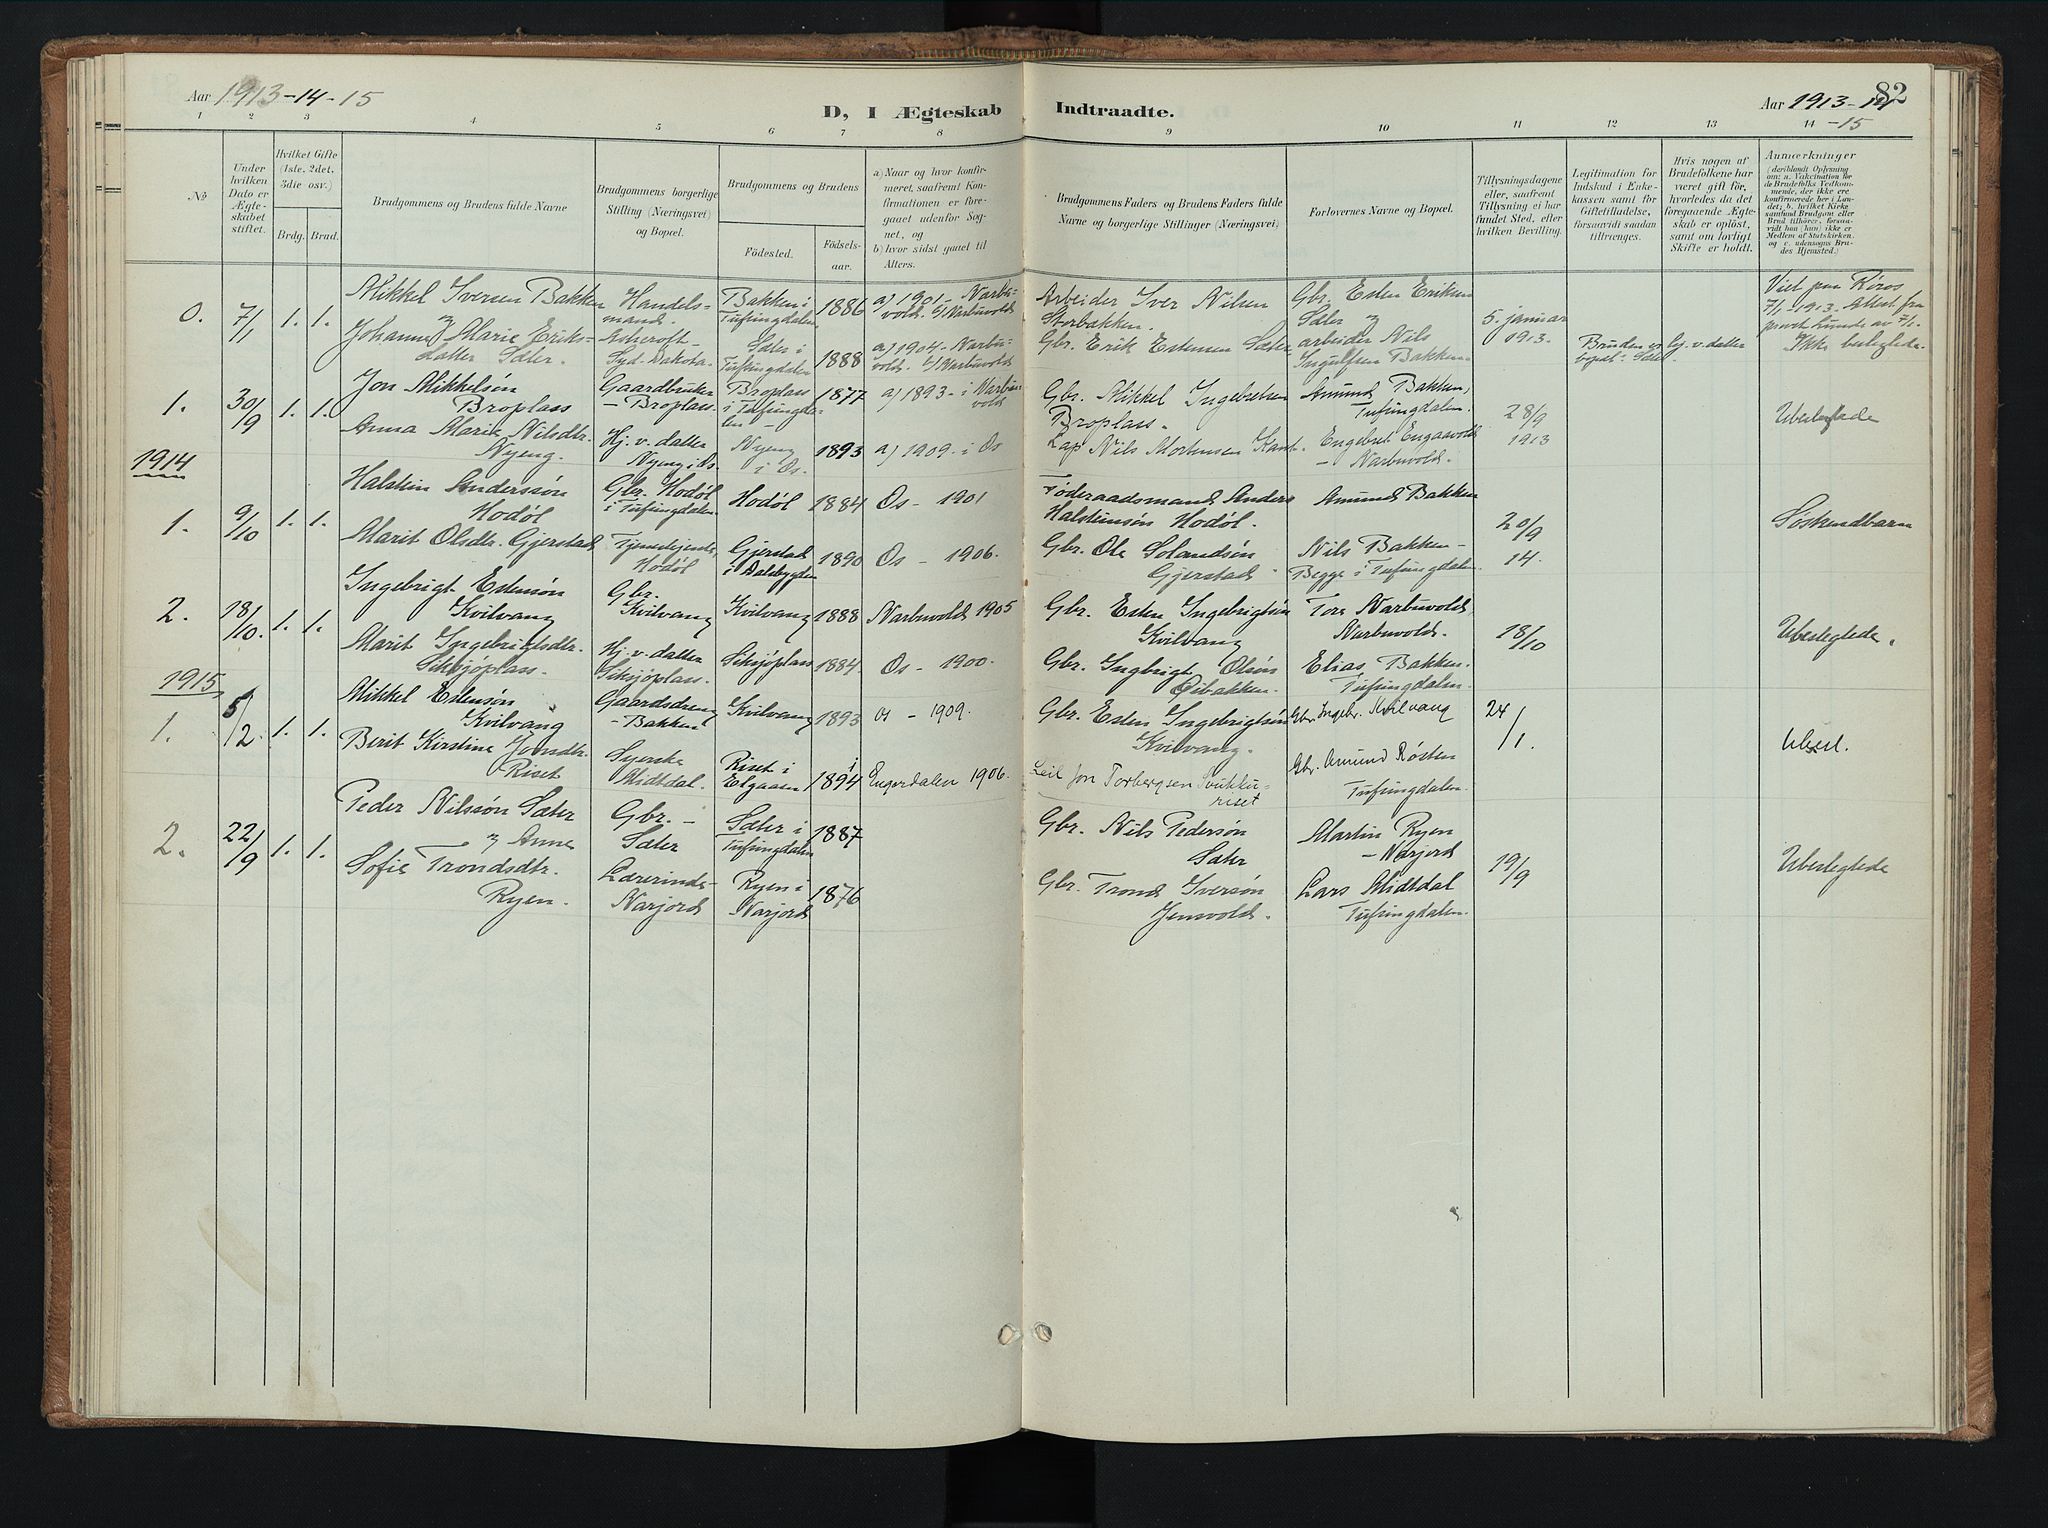 Aar 1913-14-15
D, I Ægteskab Indtraadte.
Aar 1913-14
-15
82
1 2 3 4 5 6 7 8 9 10 11 12 13 14
No
Under hvilken Dato er Ægteskabet stiftet.
Hvilket Gifte (1ste, 2det, 3die osv.)
Brdg. Brud.
Brudgommens og Brudens fulde Navne
Brudgommens borgerlige Stilling (Næringsvei) og Bopæl.
Brudgommens og Brudens
Fødested.
Fødselsaar.
a) Naar og hvor konfirmeret, saafremt Konfirmationen er foregaaet udenfor Sognet, og
b) hvor sidst gaaet til Alters.
Brudgommens Faders og Brudens Faders fulde Navne og borgerlige Stillinger (Næringsvei)
Forlovernes Navne og Bopæl.
Tillysningsdagene eller, saafremt Tillysning ei har fundet Sted, efter hvilken Bevilling.
Legitimation for Indskud i Enkekassen samt for Giftetilladelse, forsaavidt saadan tiltrænges.
Hvis nogen af Brudefolkene har været gift før, hvorledes da det foregaaende Ægteskab er opløst, samt om lovligt Skifte er holdt.
Anmærkninger
(deriblandt Oplysning om: a. Vakcination for de Brudefolks Vedkommende, der ikke ere konfirmerede her i Landet; b. hvilket Kirkesamfund Brudgom eller Brud tilhører, forsaavidt han (hun) ikke er Medlem af Statskirken, og c. udensogns Brudes Hjemsted.)
0. 7/1 1. 1.
Mikkel Iversen Bakken
Handelsmand.
Bakken i Tufsingdalen
1886
a) 1901 - Narbuvold. b) Narbuvold
Arbeider Iver Nilsen Storbakken.
Gbr. Esten Eriksen Sæter og
arbeider Nils Ingulfsen Bakken
5. januar 1913.
Viet paa Røros 7/1-1913. Attest fra
7/1.
Ikke beslegtede.
og
Johanne Marie Eriksdatter Sæter.
Syd-Dakota
Sæter i Tufsingdalen
1888
a) 1904 - Narbuvold. b) Narbuvold
Gbr. Erik Estensen Sæter
Bruden er hj. v. datter
bopæl: Sæter
1. 30/9 1. 1.
Jon Mikkelsön Broplass
Gaardbruker - Broplass.
Broplass i Tufsingdalen -
1877
a) 1893 - i Narbuvold
Gbr. Mikkel Ingebretsen Broplass.
Amund Bakken, Tufsingdalen.
28/9 1913
Ubeslegtede
Anna Marie Nilsdtr. Nyeng.
Hj. v. datter Nyeng i Os.
Nyeng i Os.
1893
a) 1909. i Os
Lap Nils Mortensen
Engebret Engaavold - Narbuvold.
1914
1. 9/10 1. 1.
Halstein Anderssön Hodöl
Gbr. Hodöl i Tufsingdalen
Hodöl
1884
Os - 1901
Föderaadsmand Anders Halsteinsön Hodöl.
Amund Bakken
20/9 14.
Söskendbarn
Marit Olsdtr. Gjerstad
Tjenestejente, Hodöl
Gjerstad i Dalsbygden
1890
Os - 1906.
Gbr. Ole Gjerstad
Nils Bakken - Begge i Tufsingdalen.
2. 18/10. 1. 1.
Ingebrigt Estensön Kvilvang
Gbr. Kvilvang
Kvilvang
1888
Narbuvold 1905
Gbr. Esten Ingebrigtsön Kvilvang
Tore Narbuvold, Narbuvold.
18/10
Ubeslegtede.
Marit Ingebrigtsdtr.
Hj. v. datter
1884.
Os - 1900.
Gbr. Ingbrigt Olsön
Elias Bakken. Tufsingdalen.
1915
1. 5/2 1. 1.
Mikkel Estensön Kvilvang
Gaardsdreng - Bakken
Kvilvang
1893
Os - 1909.
Gbr. Esten Ingebrigtsön Kvilvang.
Gbr. Ingebr. Kvilvang
24/1.
Ubesl.
Berit Kirstine Jonsdtr. Riset
Syerske Midtdal.
Riset i Elgaaen
1894
Engerdalen 1906.
Leil Jon Torbergsen
Gbr. Amund Røsten Tufsingdalen.
2. 22/9 1. 1.
Peder Nilssön Sæter
Gbr. - Sæter
Sæter i Tufsingdalen
1887
Gbr. Nils Pedersön Sæter
Martin Ryen - Narjord
19/9
Ubeslegtede
og Anne Sofie Trondsdtr. Ryen.
Lærerinde - Narjord
Ryen i Narjord
1876
Gbr. Trond Iversön Jensvold.
Lars Midtdal Tufsingdalen.